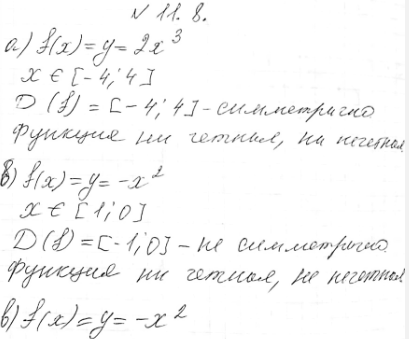 № 11.8.
а) f(x)=y=2x³
x ∈ [-4; 4]
D(f) = [-4; 4] - симметрично
функция ни четная, ни нечетная
в) f(x)=y=-x²
x ∈ [1; 0]
D(f) = [-1; 0] - не симметрично
функция ни четная, не нечетная
в) f(x)=y=-x²